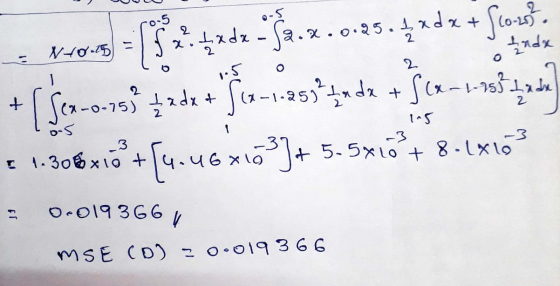 = N→0.25) = [ ∫₀^0.5 x² · 1/2 x dx − ∫₀^0.5 2 · x · 0.25 · 1/2 x dx + ∫₀ (0.25)² · 1/2 x dx
+ [ ∫_0.5^1 (x−0.75)² 1/2 x dx + ∫_1^1.5 (x−1.25)² 1/2 x dx + ∫_1.5^2 (x−1.75)² 1/2 x dx ]
= 1.306×10⁻³ + [4.46×10⁻³] + 5.5×10⁻³ + 8.1×10⁻³
= 0.019366 //
MSE (D) = 0.019366